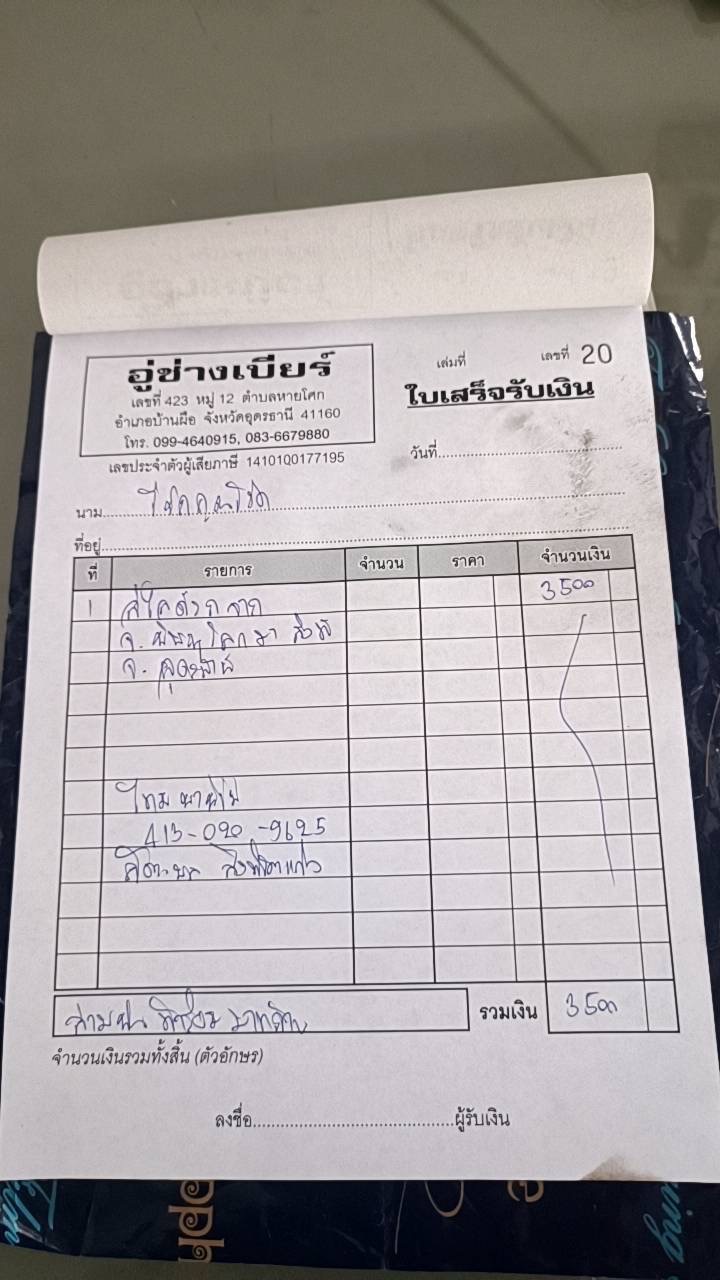 อู่ช่างเบียร์
เลขที่ 423 หมู่ 12 ตำบลหายโศก
อำเภอบ้านผือ จังหวัดอุดรธานี 41160
โทร. 099-4640915, 083-6679880
เลขประจำตัวผู้เสียภาษี 1410100177195
เล่มที่ เลขที่ 20
ใบเสร็จรับเงิน
วันที่
นาม
ที่อยู่
ที่ รายการ จำนวน ราคา จำนวนเงิน
1 3500
จ. พิษณุโลก มา ส่งที่
จ. อุดรธานี
413-020-9625
สามพันห้าร้อยบาทถ้วน รวมเงิน 3500
จำนวนเงินรวมทั้งสิ้น (ตัวอักษร)
ลงชื่อ ผู้รับเงิน